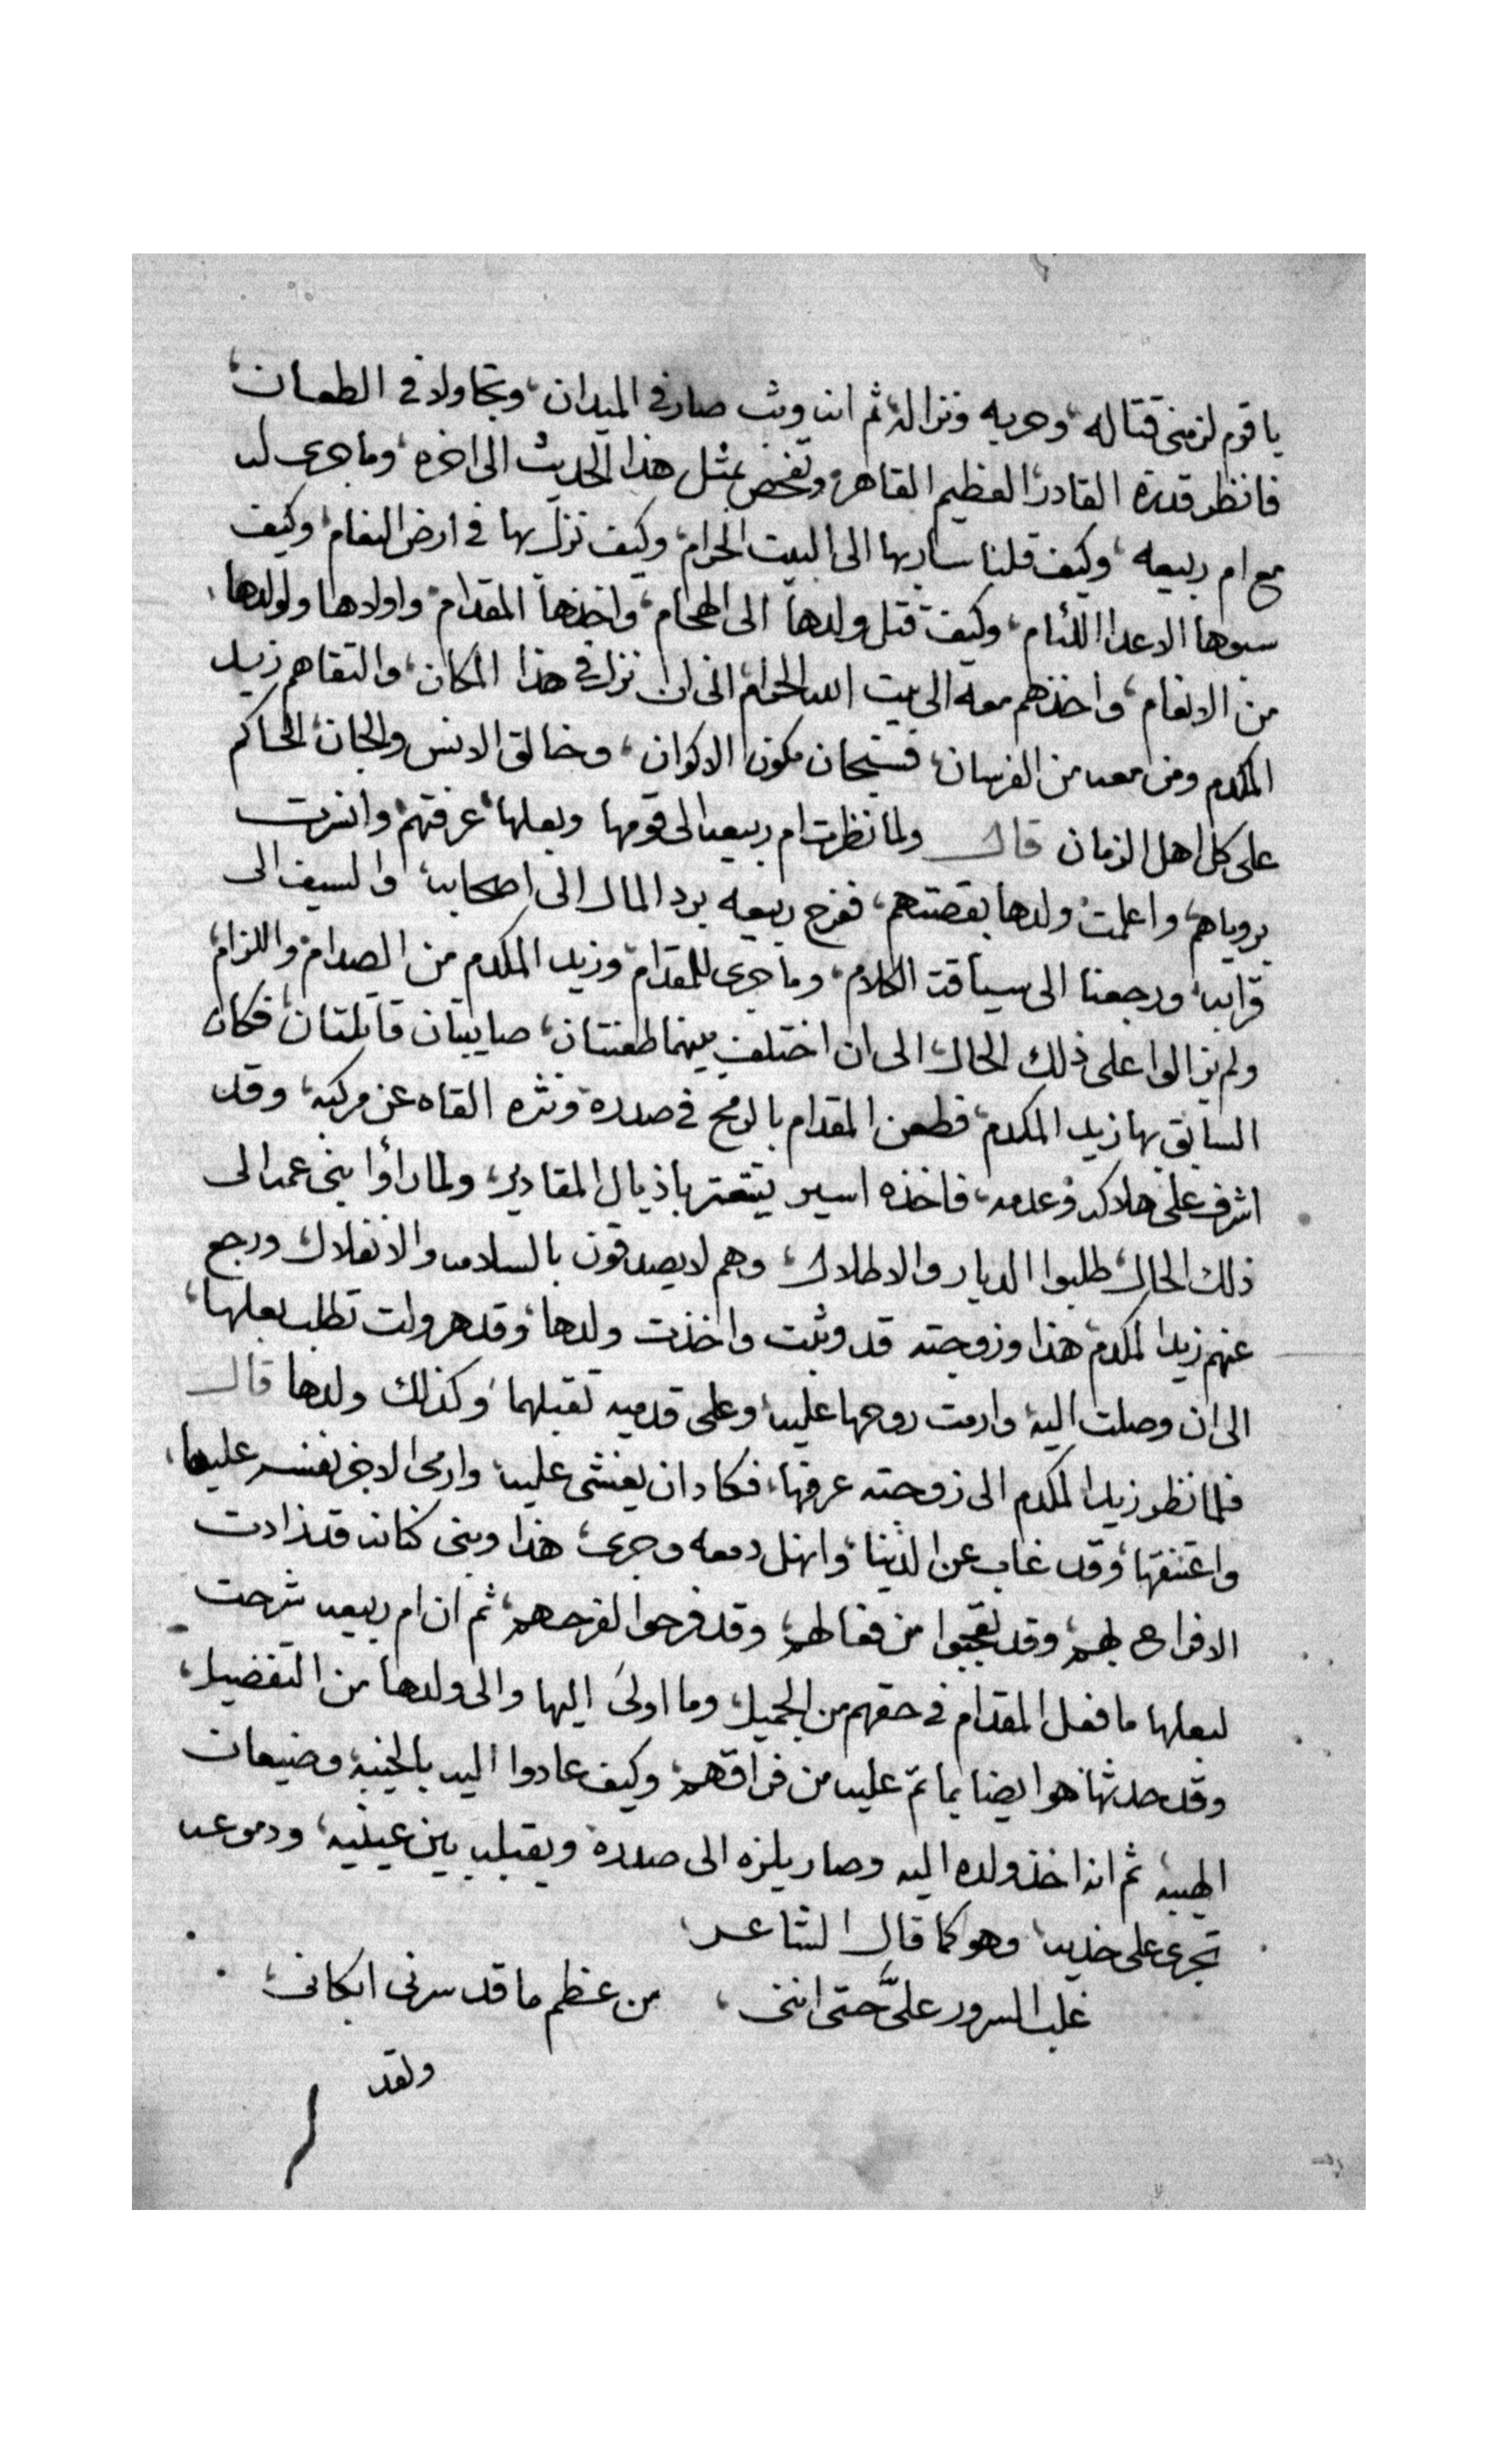 يا قوم لزمنى قتاله، وحربه ونزاله، ثم انه وثب صار فى الميدان، وتجاولا فى الطعان،
فانظر قدرة القادر، العظيم القاهر، وتفحص بمثل هذا الحديث الى اخره، وما جرى له
مع ام ربيعه، وكيف قلنا سار بها الى البيت الحرام، وكيف نزل بها فى ارض النعام، وكيف
سبوها الاعدا اللئام، وكيف قتل ولدها الى الهجام، واخذها المقدام، واولادها ولولدها
من الانعام، واخذهم معه الى بيت الله الحرام، الى ان نزل فى هذا المكان، والتقاهم زيد
المكدم ومن معه من الفرسان، فسبحان مكون الاكوان، وخالق الانس والجان، الحاكم
على كل اهل الزمان قال ولما نظرت ام ربيعه الى قومها وبعلها، عرفتهم، وانسرت
برؤياهم، واعلمت ولدها بقصتهم، ففرح ربيعه برد المال الى اصحابه، والسيف الى
قرابه، ورجعنا الى سياقة الكلام، وما جرى للمقدام، وزيد المكدم من الصدام، واللزام،
ولم يزالوا على ذلك الحال، الى ان اختلف بينهما طعنتان، صايبتان قاتلتان، فكان
السابق بها زيد المكدم، فطعن المقدام بالرمح فى صدره ونثره القاه عن مركبه، وقد
اشرف على هلاكه وعدمه، فاخذه اسير يتعتر باذيال المقادير، ولما رأوا بنى عمه الى
ذلك الحال، طلبوا الديار والاطلال، وهم لا يصدقون بالسلامه والانفلال، ورجع
عنهم زيد المكدم، هذا وزوجته قد وثبت واخذت ولدها، وقد هرولت تطلب بعلها،
الى ان وصلت اليه، وارمت روحها عليه، وعلى قدميه تقبلهما، وكذلك ولدها قال
فلما نظر زيد المكدم الى زوجته عرفها، فكاد ان يغشى عليه، وارمى الاخر نفسه عليها،
واعتنقها، وقد غاب عن الدنيا، وانهل دمعه وجرى، هذا وبنى كنانه قد زادت
الافراح بهم، وقد تعجبوا من فعالهم، وقد فرحوا لفرحهم، ثم ان ام ربيعه شرحت
لبعلها ما فعل المقدام فى حقهم من الجميل، وما اولى اليها والى ولدها من التفضيل،
وقد حدثها هو ايضا بما تم عليه من فراقهم، وكيف عادوا اليه بالخيبه وضيعان
الهيبه، ثم انه اخذ ولده اليه وصار يلزه الى صدره ويقبله بين عينيه، ودموعه
تجرى على خديه، وهو كما قال الشاعر
غلب السرور علىَّ حتى اننى، من عظم ما قد سرنى ابكانى،
ولقد